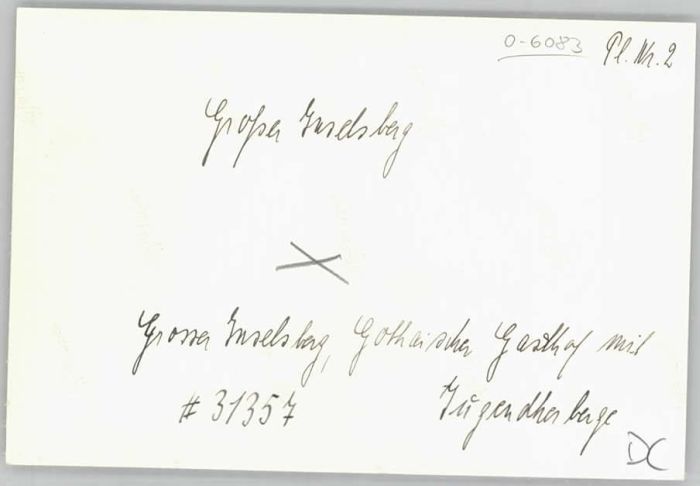 0-6083 Pl. Nr. 2
Großer Inselsberg
X
Grosser Inselsberg, Gothaischer Gasthof mit
# 31357 Jugendherberge
DC